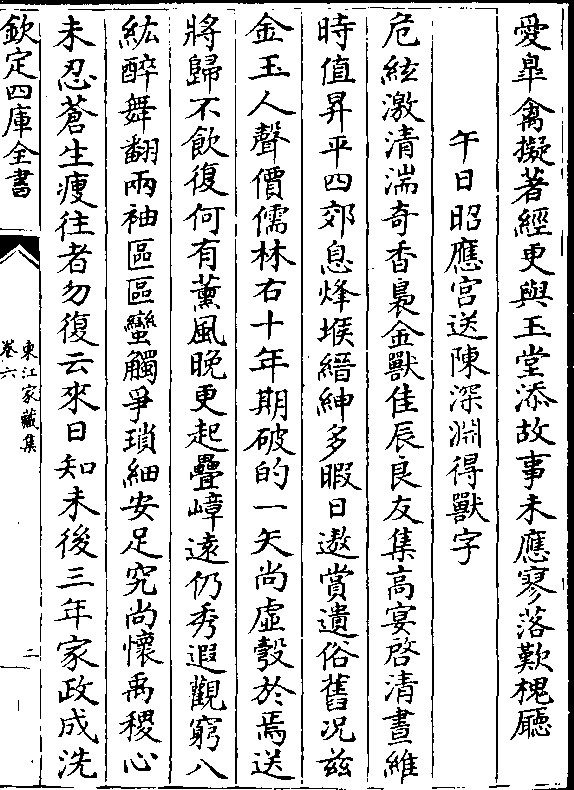 愛臯禽擬著經更與玉堂添故事未應寥落歎槐廳
午日昭應宮送陳深淵得獸字
危絃激清湍奇香裊金獸佳辰良友集高宴啓清晝維
時值昇平四郊息烽堠縉紳多暇日遨賞遺俗舊况兹
金玉人聲價儒林右十年期破的一矢尚虛彀於焉送
將歸不飲復何有薰風晚更起疊嶂遠仍秀遐觀窮八
紘醉舞翻兩袖區區蠻觸爭瑣細安足究尚懷禹稷心
未忍蒼生瘦往者勿復云來日知未後三年家政成洗
欽定四庫全書
東江家藏集
卷六
二